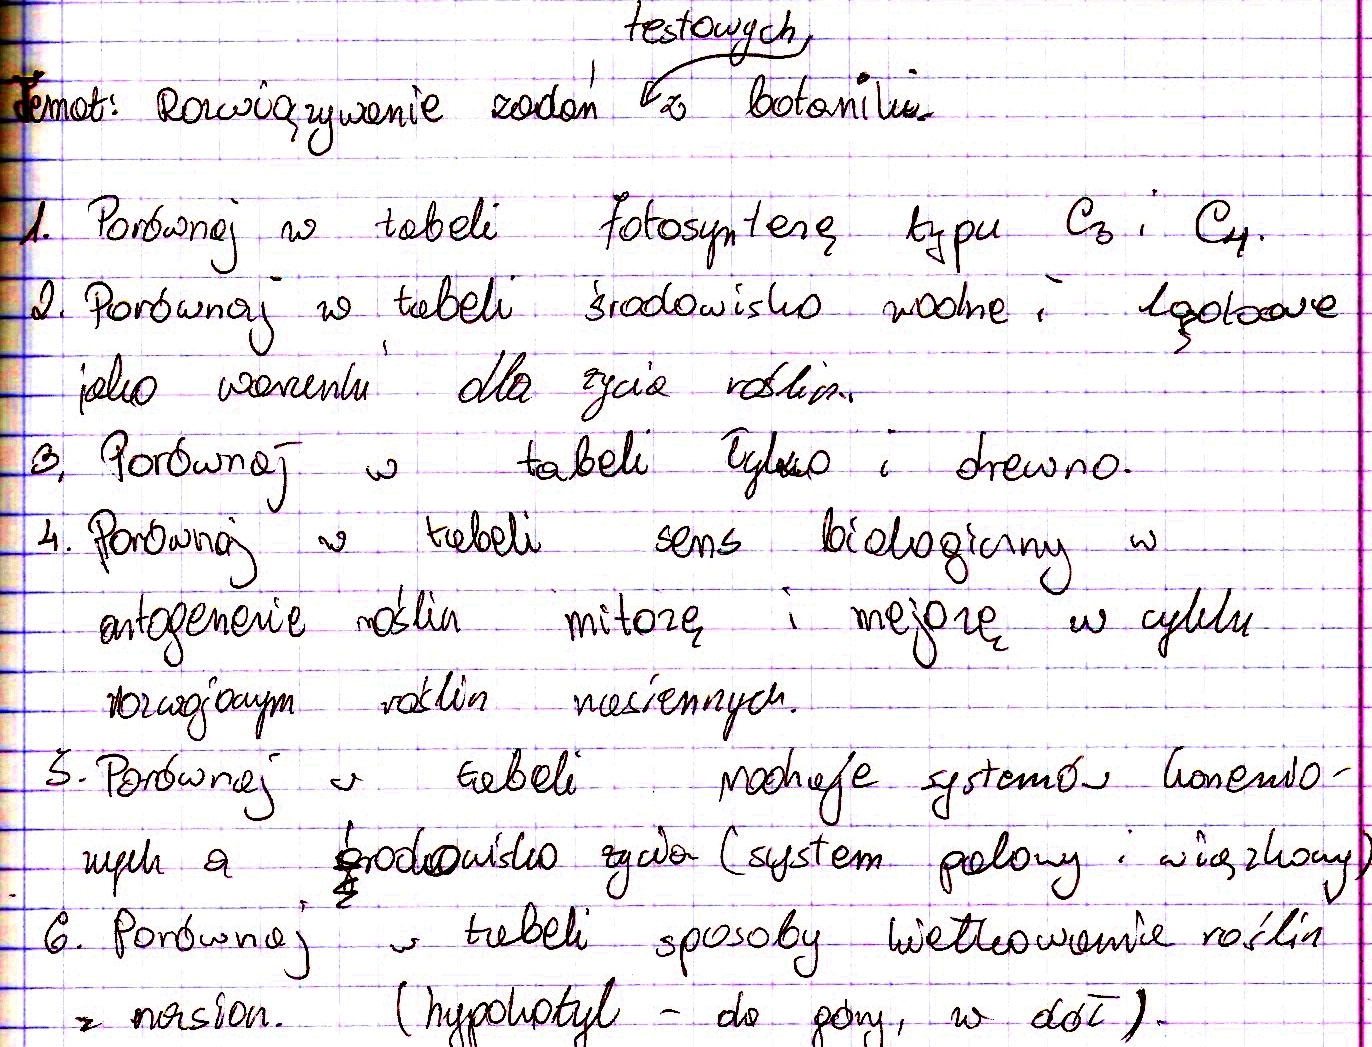 testowych
Temat: Rozwiązywanie zadań z botaniki.
1. Porównaj w tabeli fotosyntezę typu C3 i C4.
2. Porównaj w tabeli środowisko wodne i lądowe
jako warunki dla życia roślin.
3. Porównaj w tabeli łyko i drewno.
4. Porównaj w tabeli sens biologiczny w
ontogenezie roślin mitozę i mejozę w cyklu
rozwojowym roślin nasiennych.
5. Porównaj w tabeli rodzaje systemów korzenio-
wych a środowisko życia (system palowy i wiązkowy)
6. Porównaj w tabeli sposoby kiełkowania roślin
z nasion. (hypokotyl - do góry, w dół).